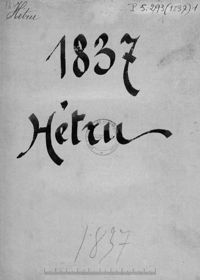 Hétru
P 5.293(1837)1
1837
Hétru
1837